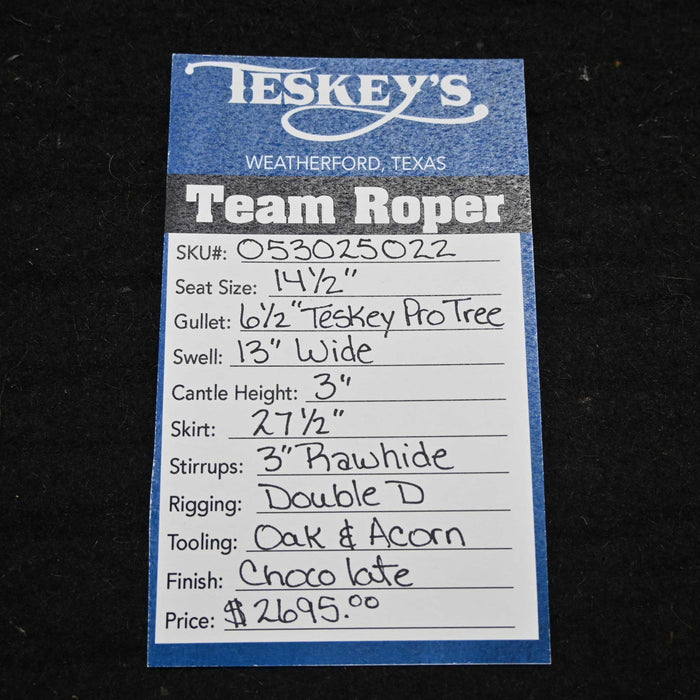 TESKEY'S
WEATHERFORD, TEXAS
Team Roper
SKU#: 053025022
Seat Size: 14½"
Gullet: 6½" Teskey Pro Tree
Swell: 13" Wide
Cantle Height: 3"
Skirt: 27½"
Stirrups: 3" Rawhide
Rigging: Double D
Tooling: Oak & Acorn
Finish: Chocolate
Price: $2695.00